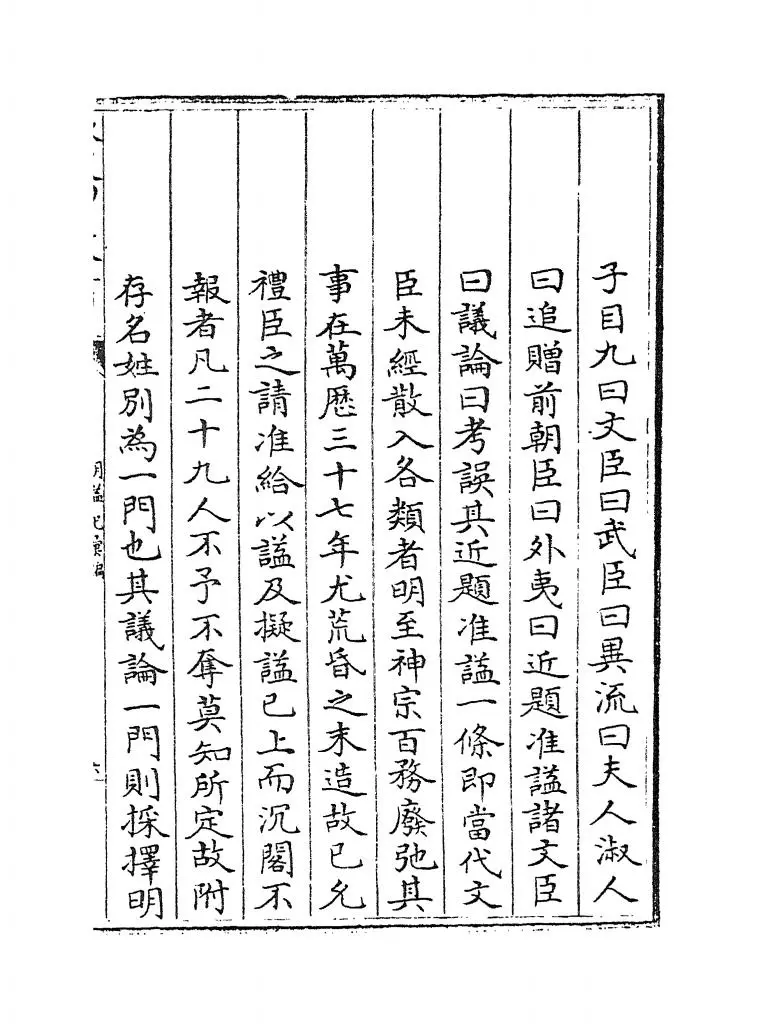 子目九曰文臣曰武臣曰異流曰夫人淑人
曰追贈前朝臣曰外夷曰近題准謚諸文臣
曰議論曰考誤其近題准謚一條即當代文
臣未經散入各類者明至神宗百務廢弛其
事在萬厯三十七年尤荒昏之末造故已允
禮臣之請准給以謚及擬謚已上而沉閣不
報者凡二十九人不予不奪莫知所定故附
存名姓別為一門也其議論一門則採擇明
明謚紀彙編